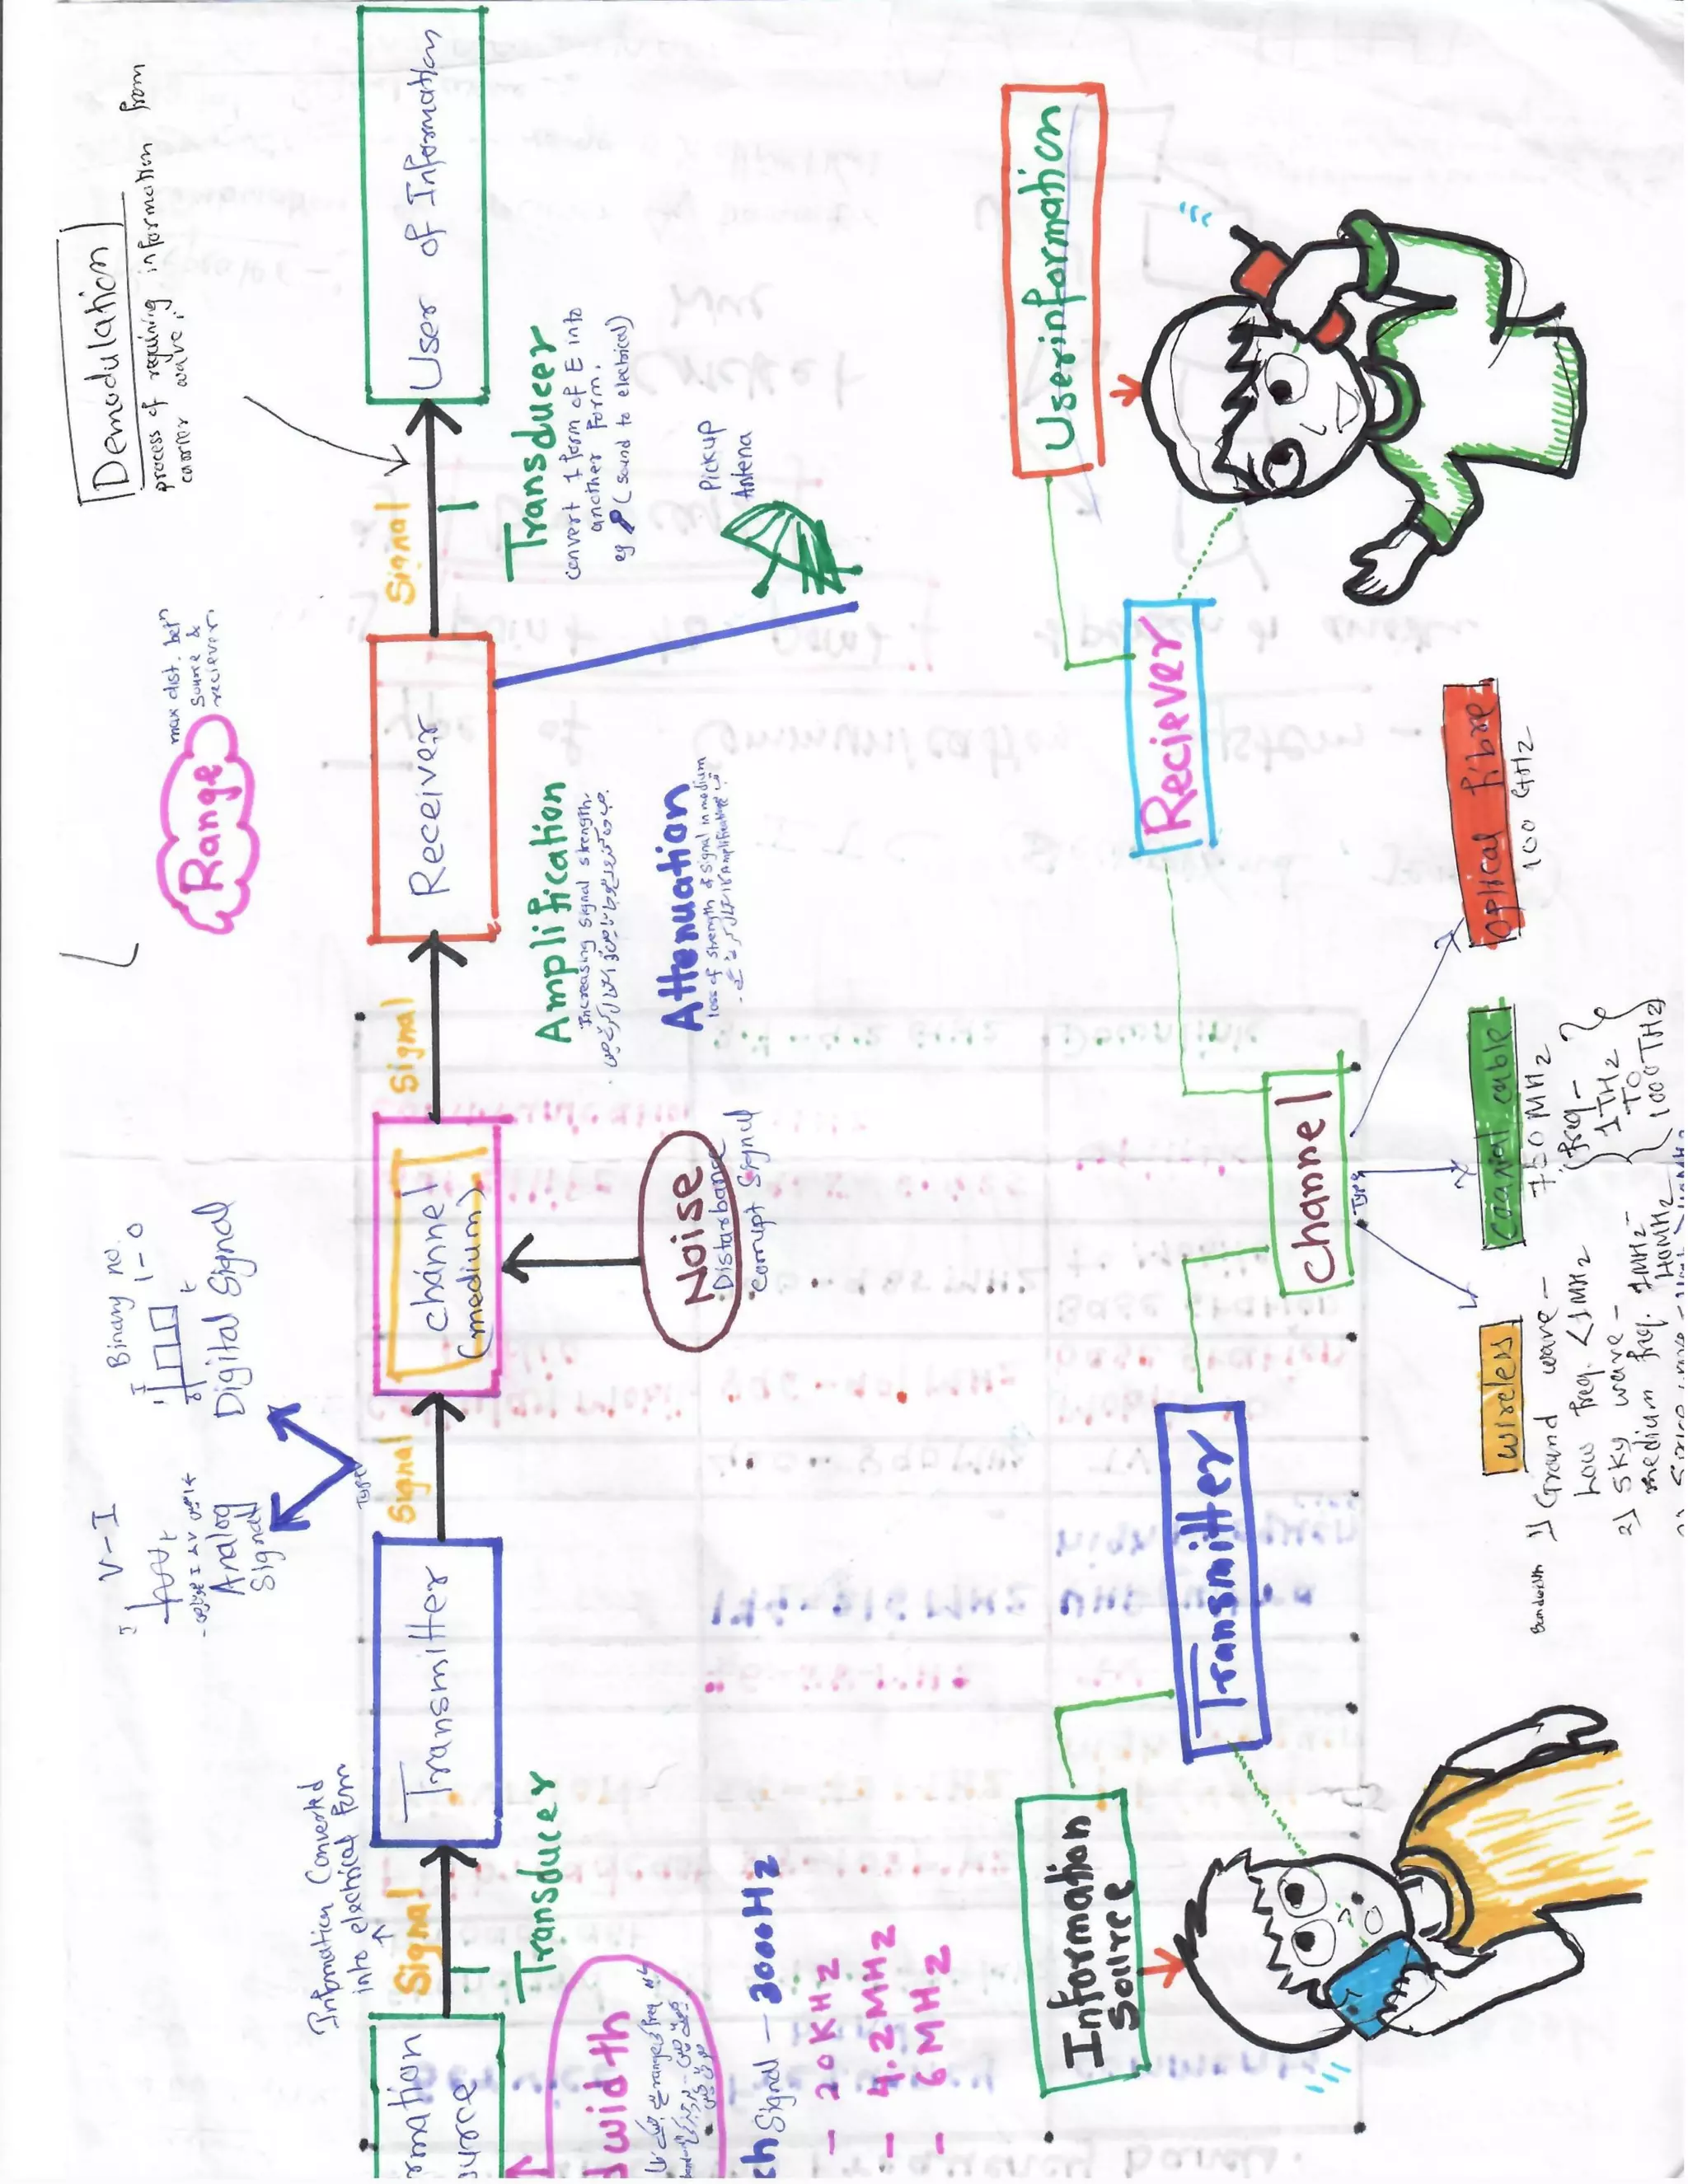 Demodulation
process of regaining information from
carrier wave
Range
max dist. betn
source &
reciever.
Binary no.
1-0
Digital Signal
V-I
Analog
Signal
Types
Information Converted
into electrical Form
rmation
urce
Signal
Transmitter
Signal
channel
(medium)
Signal
Receiver
Signal
User of Information
Transducer
Transducer
convert 1 form of E into
another Form.
eg (sound to electrical)
Pickup
Antena
Amplification
Increasing signal strength.
Attenuation
loss of strength of signal in medium
Noise
Distarbance
corrupt signal
dwidth
ch Signal - 3000Hz
- 20KHz
- 4.2MHz
- 6MHz
Information
Source
Transmitter
Channel
Reciever
Userinformation
Type
wireless
coaxial cable
optical fibre
Bandwidth
1) Ground wave -
Low freq. <1MHz
2) sky wave -
medium freq. 1MHz-
40MHz
750MHz
100 GHz
(freq -
1THz
TO
1000THz)